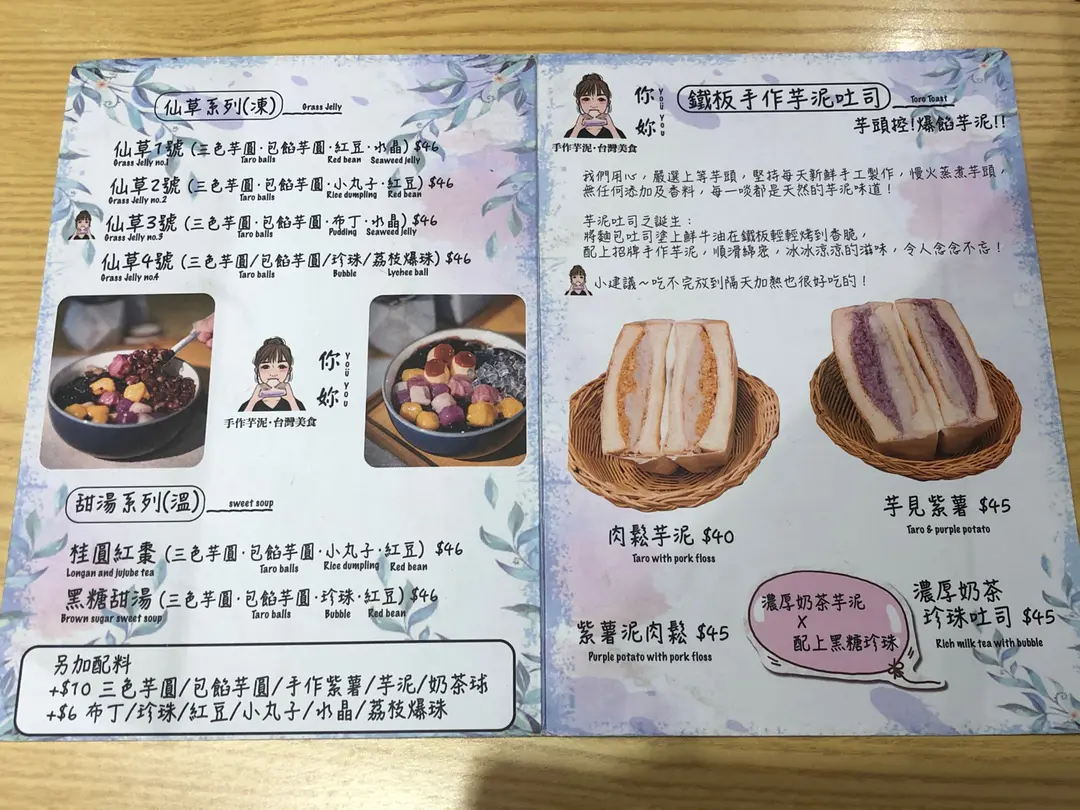 仙草系列(凍) Grass Jelly
仙草1號 (三色芋圓·包餡芋圓·紅豆·水晶) $46
Grass Jelly no.1 Taro balls Red bean Seaweed jelly
仙草2號 (三色芋圓·包餡芋圓·小丸子·紅豆) $46
Grass Jelly no.2 Taro balls Rice dumpling Red bean
仙草3號 (三色芋圓·包餡芋圓·布丁·水晶) $46
Grass Jelly no.3 Taro balls Pudding Seaweed jelly
仙草4號 (三色芋圓/包餡芋圓/珍珠/荔枝爆珠) $46
Grass Jelly no.4 Taro balls Bubble Lychee ball
你妳 YOU YOU
手作芋泥·台灣美食
甜湯系列(溫) sweet soup
桂圓紅棗 (三色芋圓·包餡芋圓·小丸子·紅豆) $46
Longan and jujube tea Taro balls Rice dumpling Red bean
黑糖甜湯 (三色芋圓·包餡芋圓·珍珠·紅豆) $46
Brown sugar sweet soup Taro balls Bubble Red bean
另加配料
+$10 三色芋圓/包餡芋圓/手作紫薯/芋泥/奶茶球
+$6 布丁/珍珠/紅豆/小丸子/水晶/荔枝爆珠
你妳 YOU YOU
手作芋泥·台灣美食
鐵板手作芋泥吐司 Toro Toast
芋頭控!爆餡芋泥!!
我們用心，嚴選上等芋頭，堅持每天新鮮手工製作，慢火蒸煮芋頭，
無任何添加及香料，每一啖都是天然的芋泥味道！
芋泥吐司之誕生：
將麵包吐司塗上鮮牛油在鐵板輕輕烤到香脆，
配上招牌手作芋泥，順滑綿密，冰冰涼涼的滋味，令人念念不忘！
小建議～吃不完放到隔天加熱也很好吃的！
肉鬆芋泥 $40
Taro with pork floss
芋見紫薯 $45
Taro & purple potato
紫薯泥肉鬆 $45
Purple potato with pork floss
濃厚奶茶芋泥
X
配上黑糖珍珠
濃厚奶茶
珍珠吐司 $45
Rich milk tea with bubble